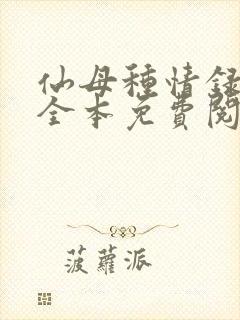 仙母種情錄
全本免費閱
菠蘿派